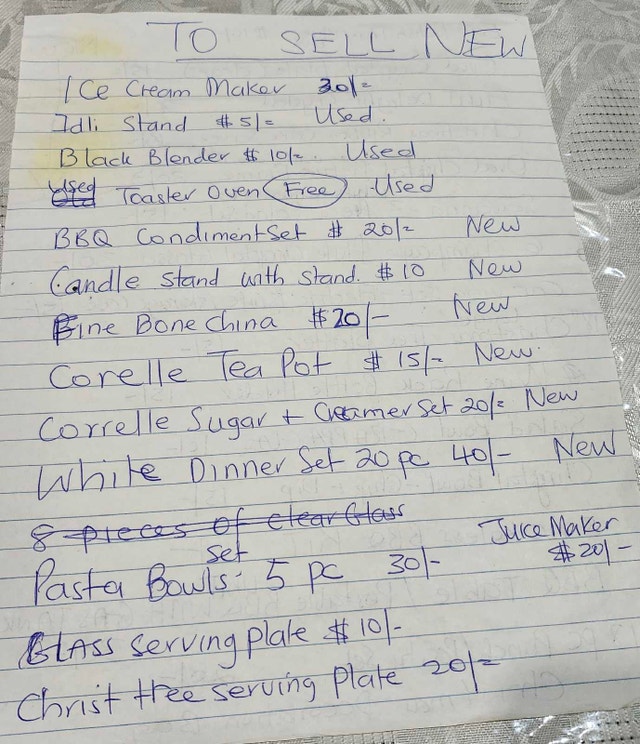 TO SELL NEW
Ice Cream Maker 30/=
Idli Stand $5/= Used.
Black Blender $10/=. Used
Used Toaster Oven Free Used
BBQ Condiment Set $ 20/= New
Candle Stand with Stand. $10 New
Fine Bone China $20/- New
Corelle Tea Pot $ 15/= New.
Correlle Sugar + Creamer Set 20/= New
White Dinner Set 20 pc 40/- New
8 pieces of clear Glass
Juice Maker
Pasta Bowls set 5 pc 30/- $20/-
Glass serving plate $10/-
Christ tree serving plate 20/=